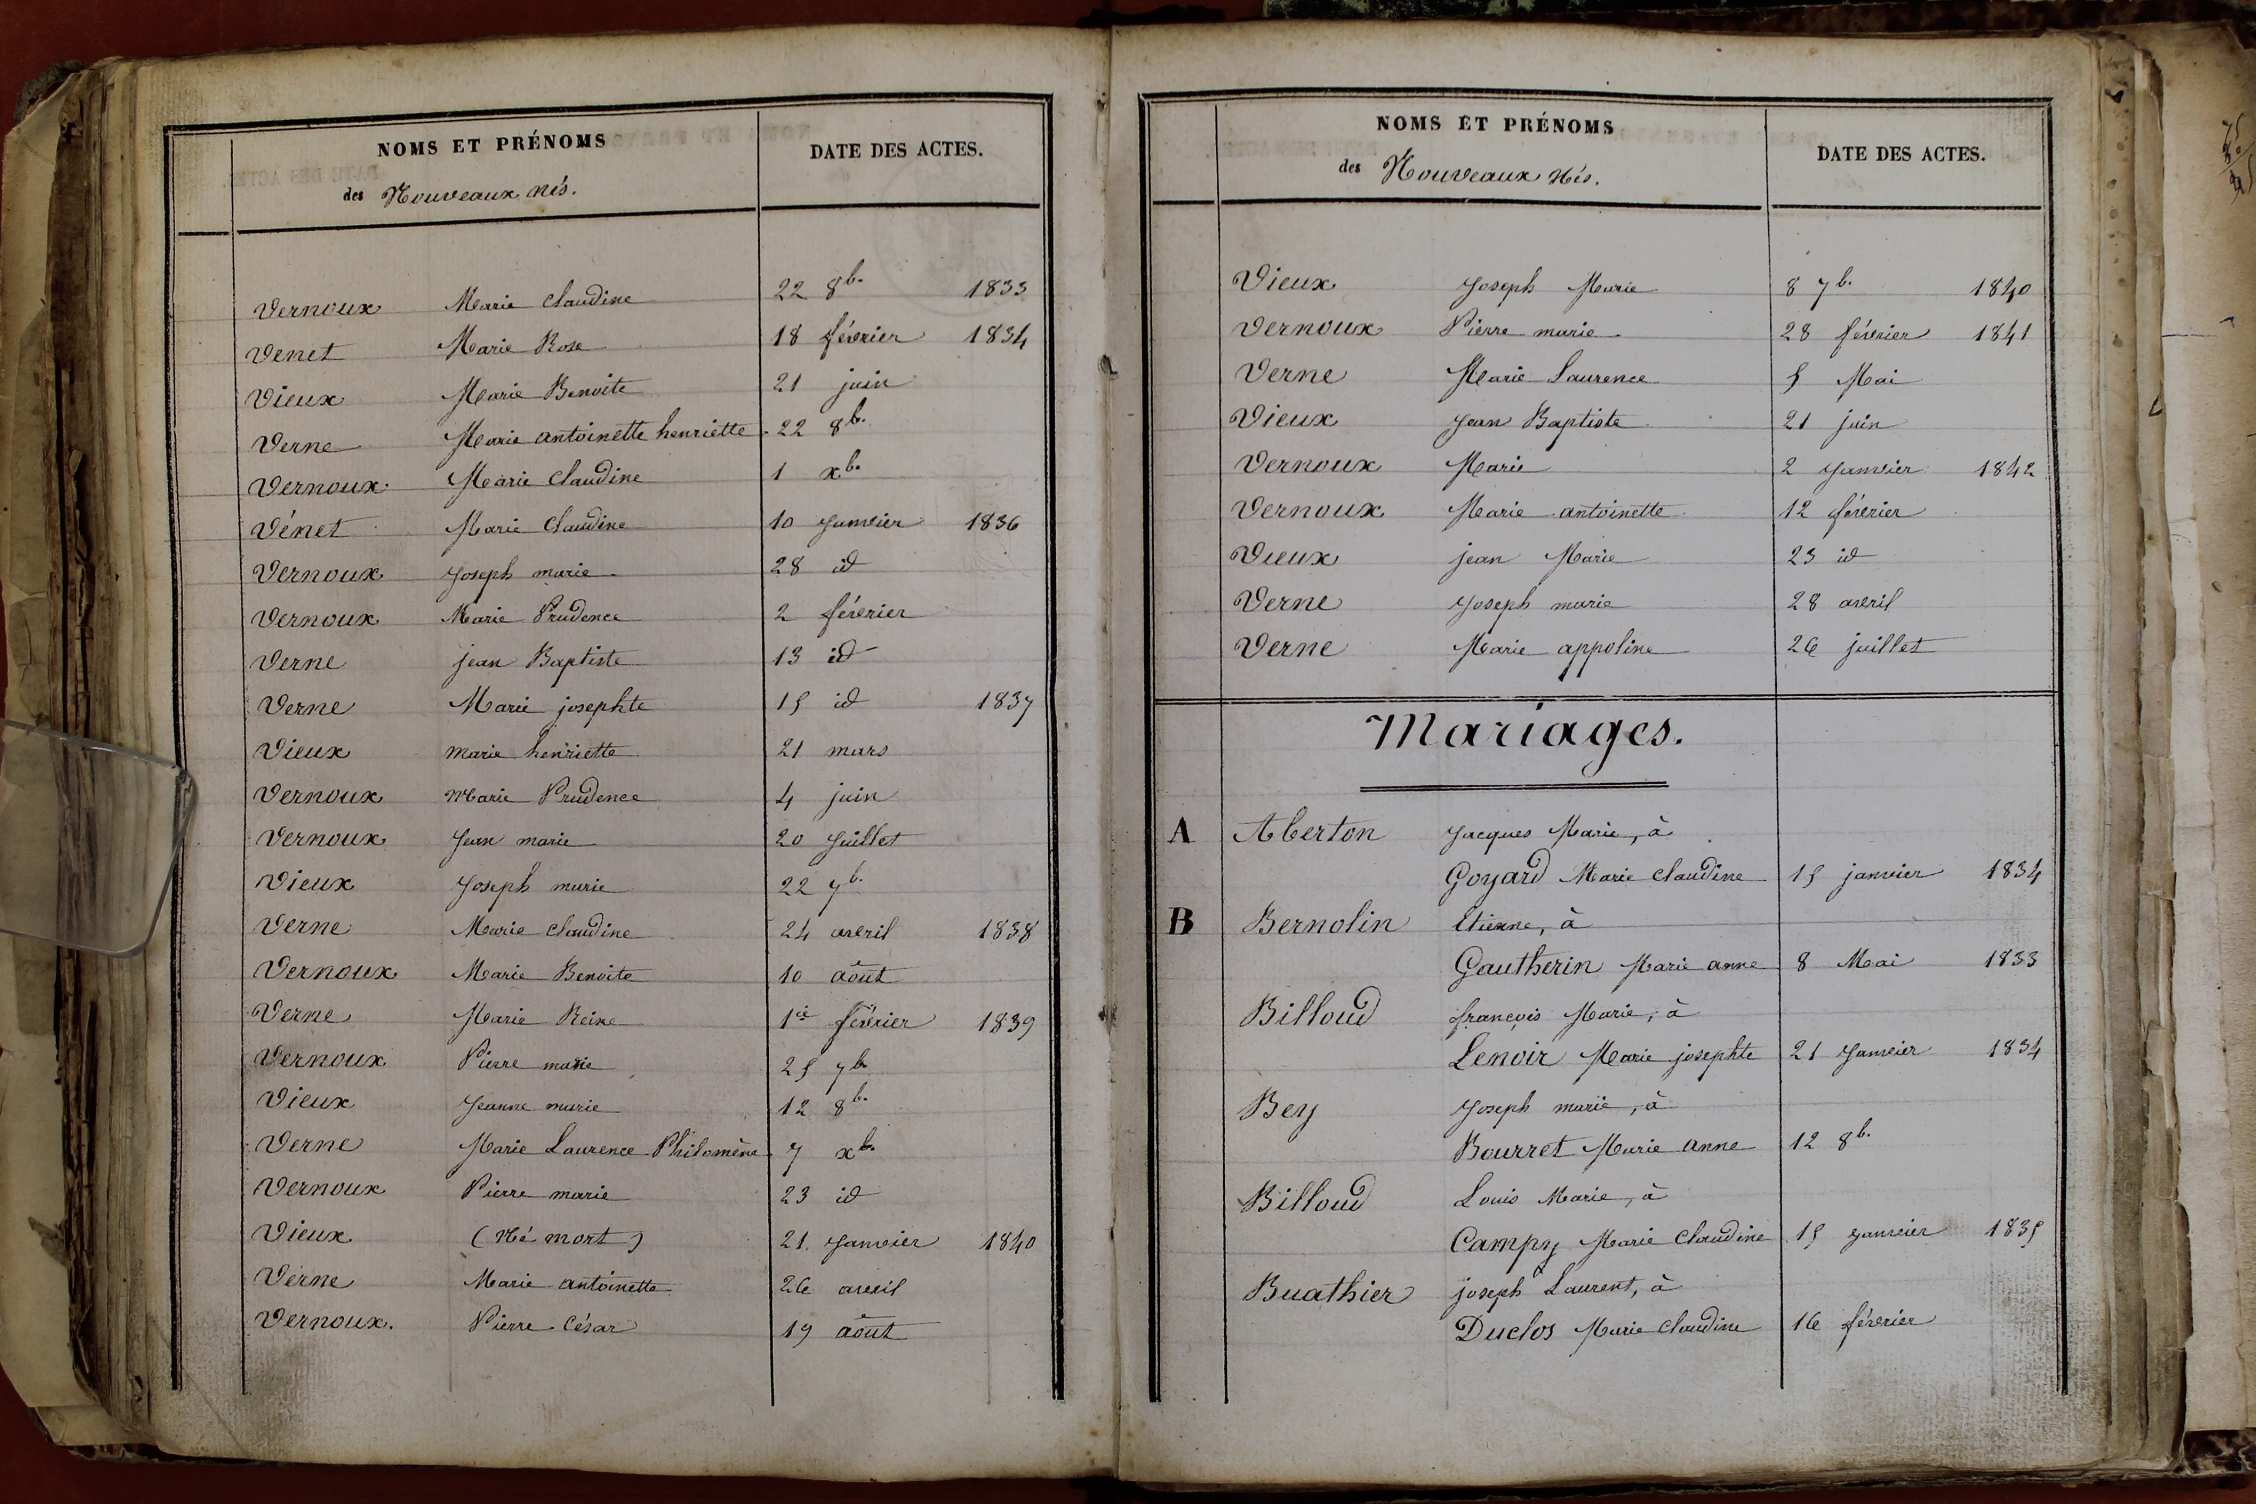 NOMS ET PRÉNOMS
DATE DES ACTES.
des Nouveaux nés.
Vernoux Marie Claudine 22 8b. 1833
Venet Marie Rose 18 février 1834
Vieux Marie Benoite 21 juin
Verne Marie antoinette henriette 22 8b.
Vernoux Marie Claudine 1 xb.
Vénet Marie Claudine 10 Janvier 1836
Vernoux Joseph marie 28 id
Vernoux Marie Prudence 2 février
Verne jean Baptiste 13 id
Verne Marie josephte 15 id 1837
Vieux marie henriette 21 mars
Vernoux Marie Prudence 4 juin
Vernoux Jean marie 20 Juillet
Vieux Joseph marie 22 7b.
Verne Marie Claudine 24 avril 1838
Vernoux Marie Benoite 10 août
Verne Marie Reine 1er février 1839
Vernoux Pierre marie 25 7b.
Vieux Jeanne marie 12 8b.
Verne Marie Laurence Philomène 7 xb.
Vernoux Pierre marie 23 id
Vieux (Né mort) 21 Janvier 1840
Verne Marie antoinette 26 avril
Vernoux. Pierre César 19 août
NOMS ET PRÉNOMS
DATE DES ACTES.
des Nouveaux nés.
Vieux Joseph Marie 8 7b. 1840
Vernoux Pierre marie 28 février 1841
Verne Marie Laurence 5 Mai
Vieux Jean Baptiste 21 juin
Vernoux Marie 2 Janvier 1842
Vernoux Marie antoinette 12 février
Vieux jean Marie 23 id
Verne Joseph marie 28 avril
Verne Marie appoline 26 juillet
Mariages.
A Aberton Jacques Marie, à
Goyard Marie Claudine 15 janvier 1834
B Bernolin Etienne, à
Gautherin Marie anne 8 Mai 1833
Billoud françois Marie, à
Lenoir Marie josephte 21 Janvier 1834
Bey Joseph marie, à
Bourret Marie anne 12 8b.
Billoud Louis Marie, à
Campy Marie Claudine 15 Janvier 1835
Buathier joseph Laurent, à
Duclos Marie Claudine 16 février